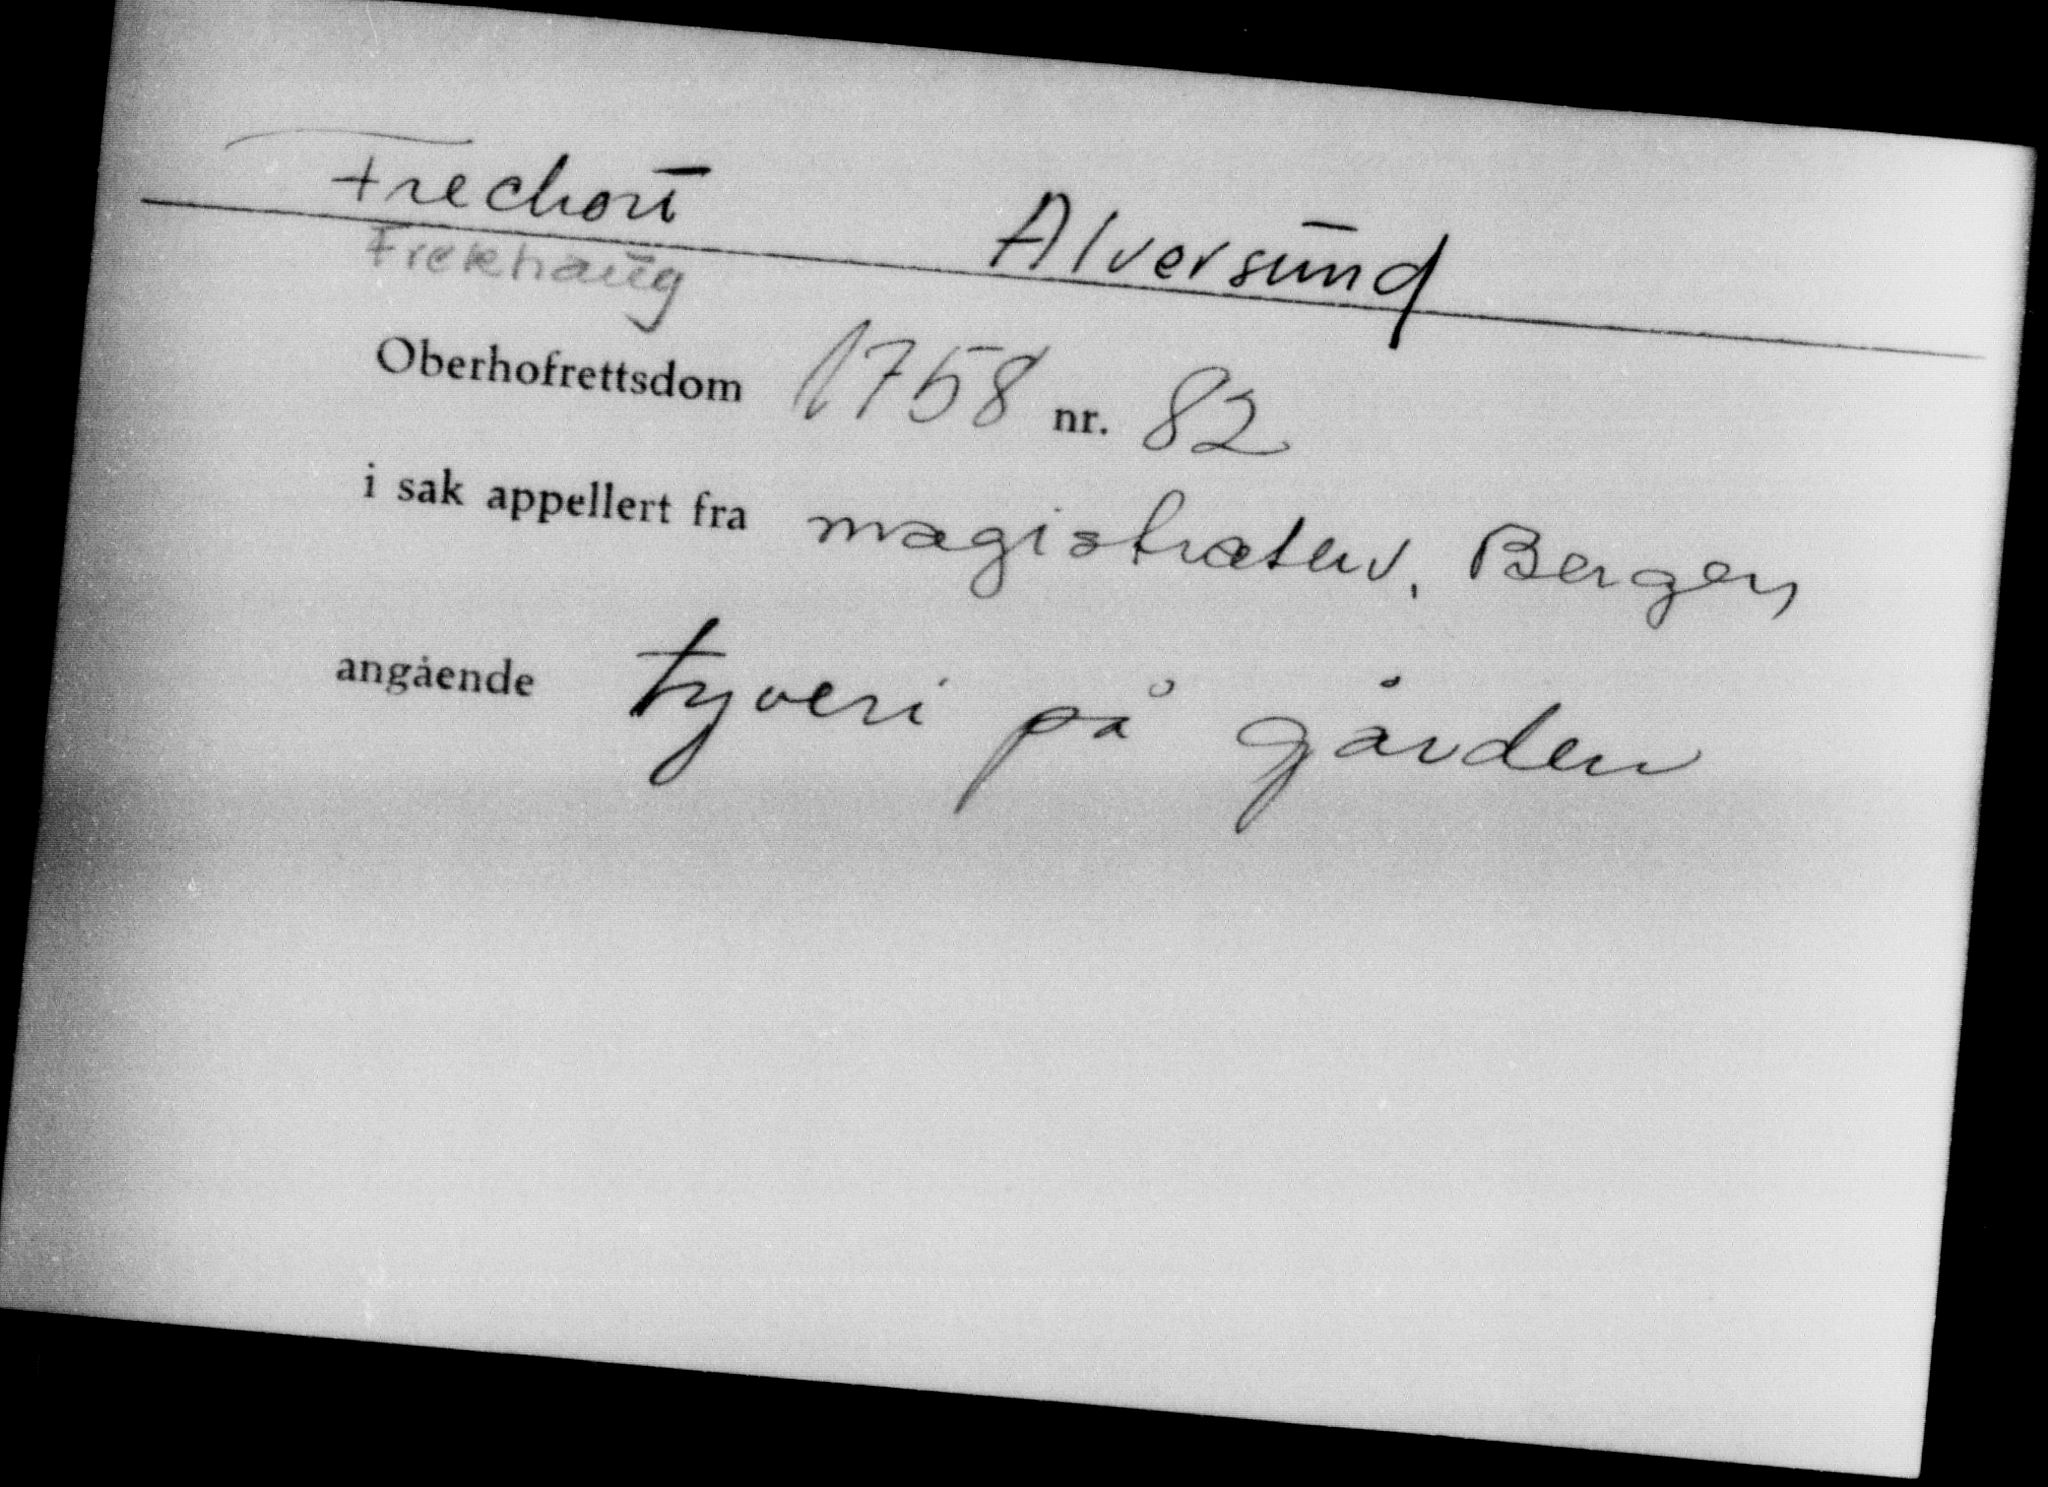 Frechou Alversund
Frekhaug
Oberhofrettsdom 1758 nr. 82
i sak appellert fra magistraten, Bergen
angående tyveri på gården